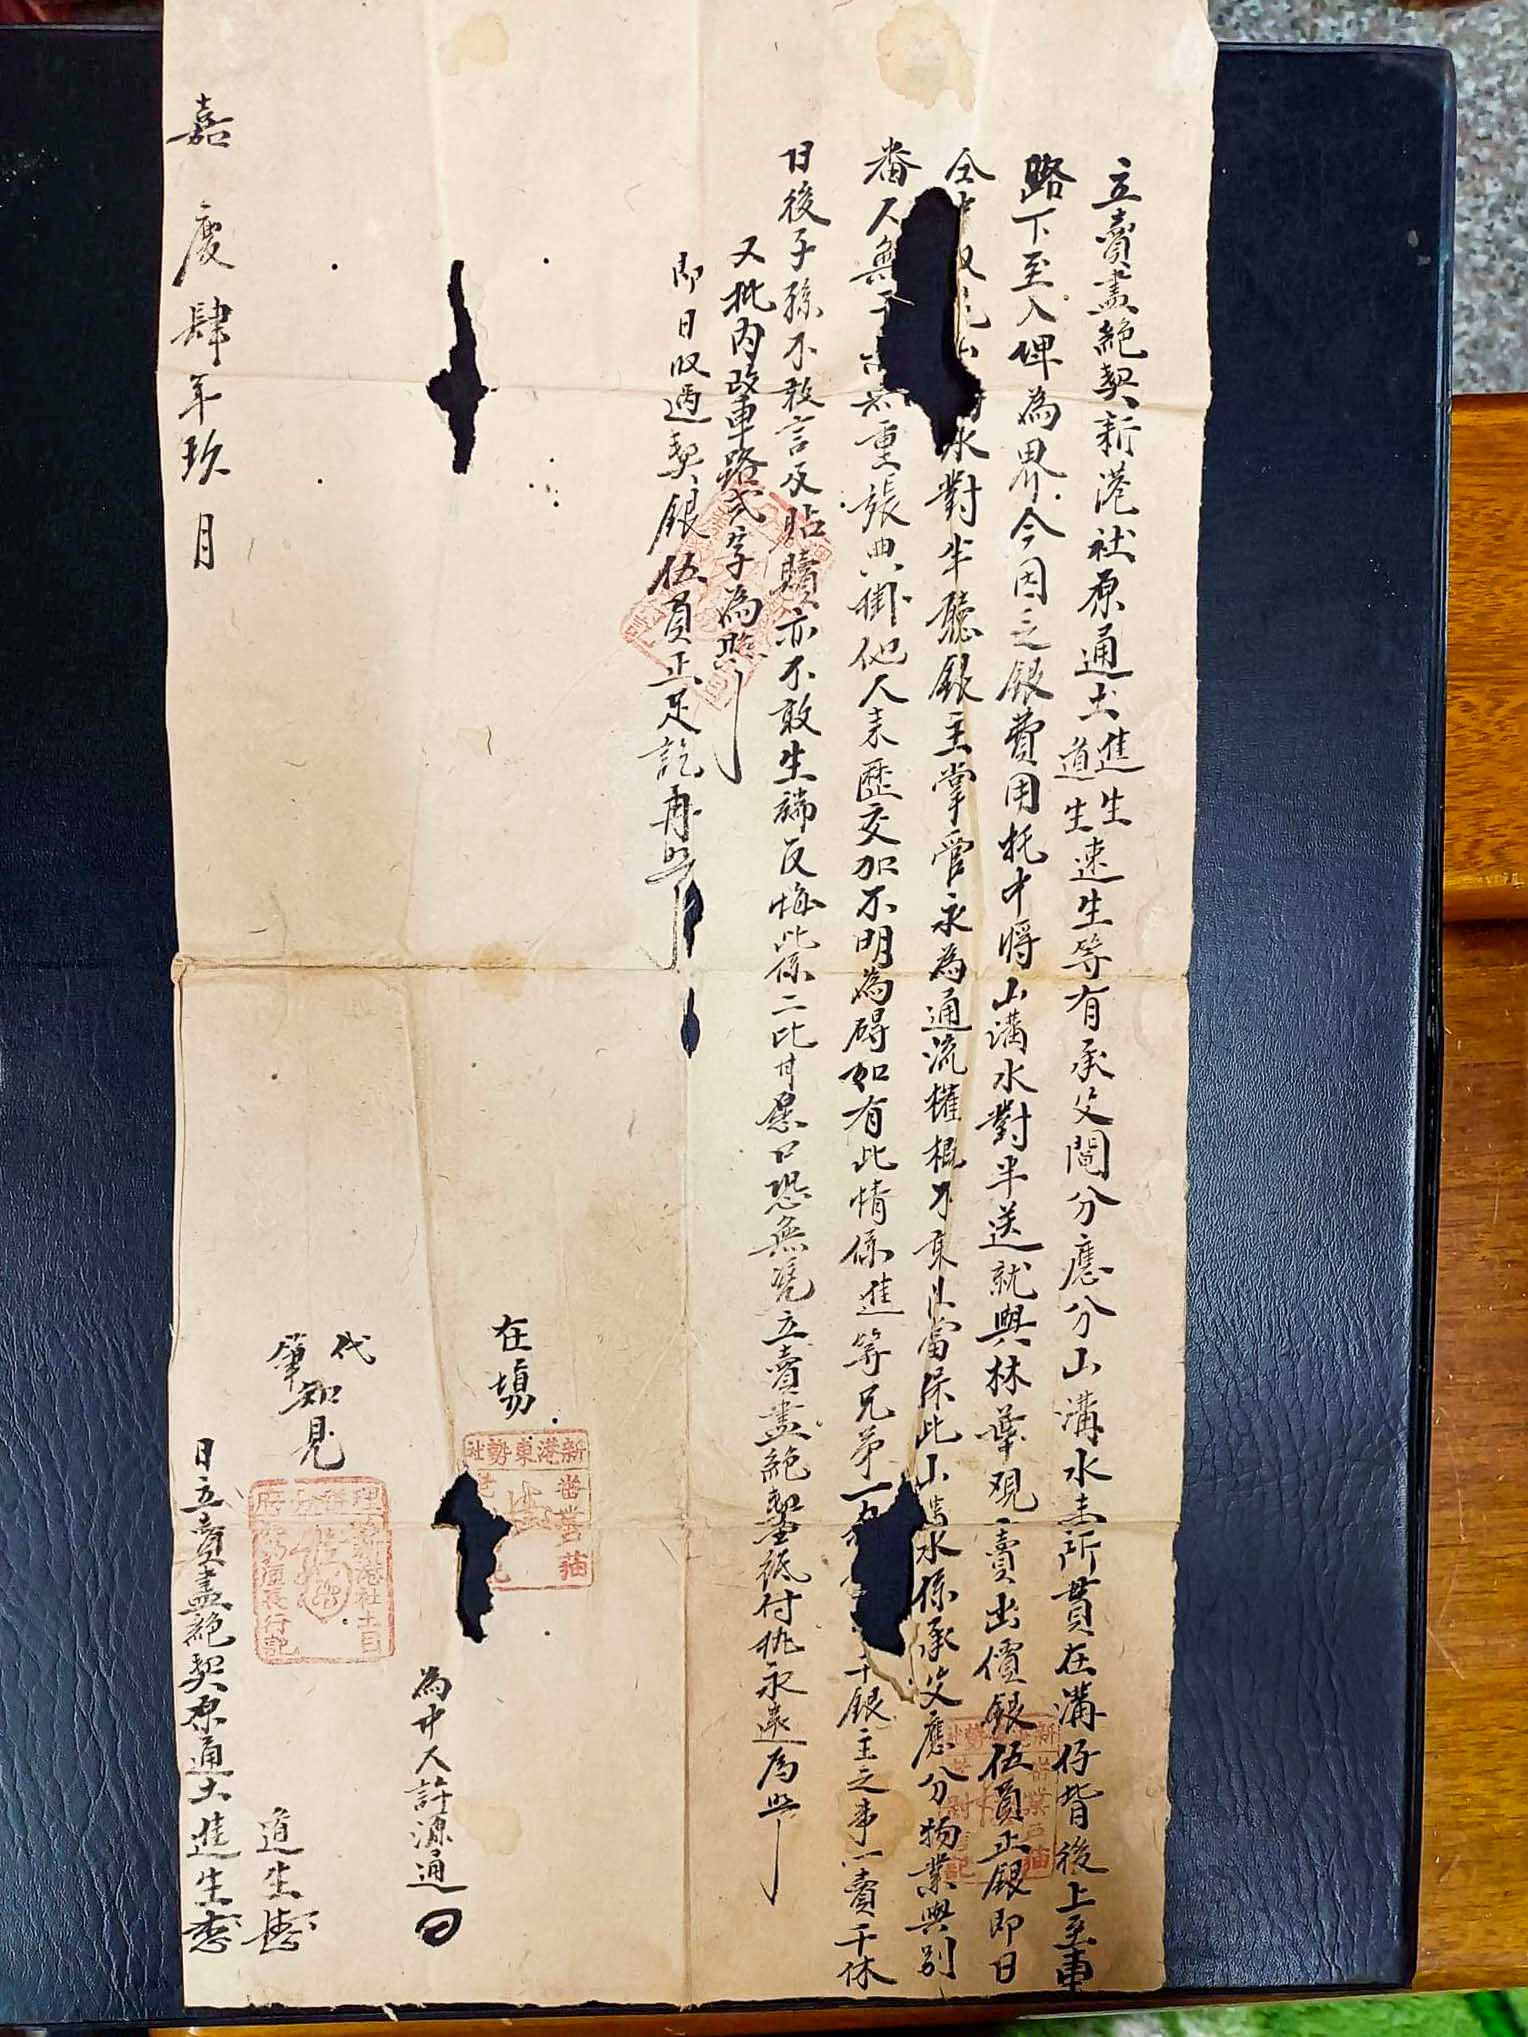 立賣盡絕契新港社原通土進生
道生速生等有承父鬮分應分山溝水圭所貫在溝仔背後上至車
路下至入埤為界今因乏銀費用托中將山溝水對半送就與林葉观賣出價銀伍員正銀即日
仝中收 水對半聽銀主掌管永為通流權概不 當保此山 水係承父應分物業與別
番人無干 無重張典掛他人來歷交加不明為碍如有此情係進等兄弟一 干銀主之事一賣千休
日後子孫不敢言及貼贖亦不敢生端反悔此係二比甘愿口恐無凴立賣盡絕契一紙付執永遠為照
又批內改車路弍字為照
即日收過契銀伍員正足訖再照
在場
新港東勢社番業
為中人許源通
代筆知見
理 府 新港社土目
道生
嘉慶肆年玖月 日立賣盡絕契原通土進生